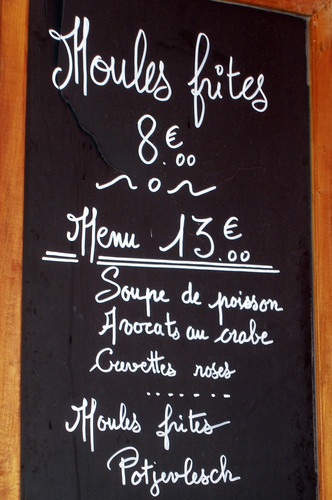 Moules frites
8€.00
Menu 13€.00
Soupe de poisson
Avocats au crabe
Crevettes roses
.......
Moules frites
Potjevlesch